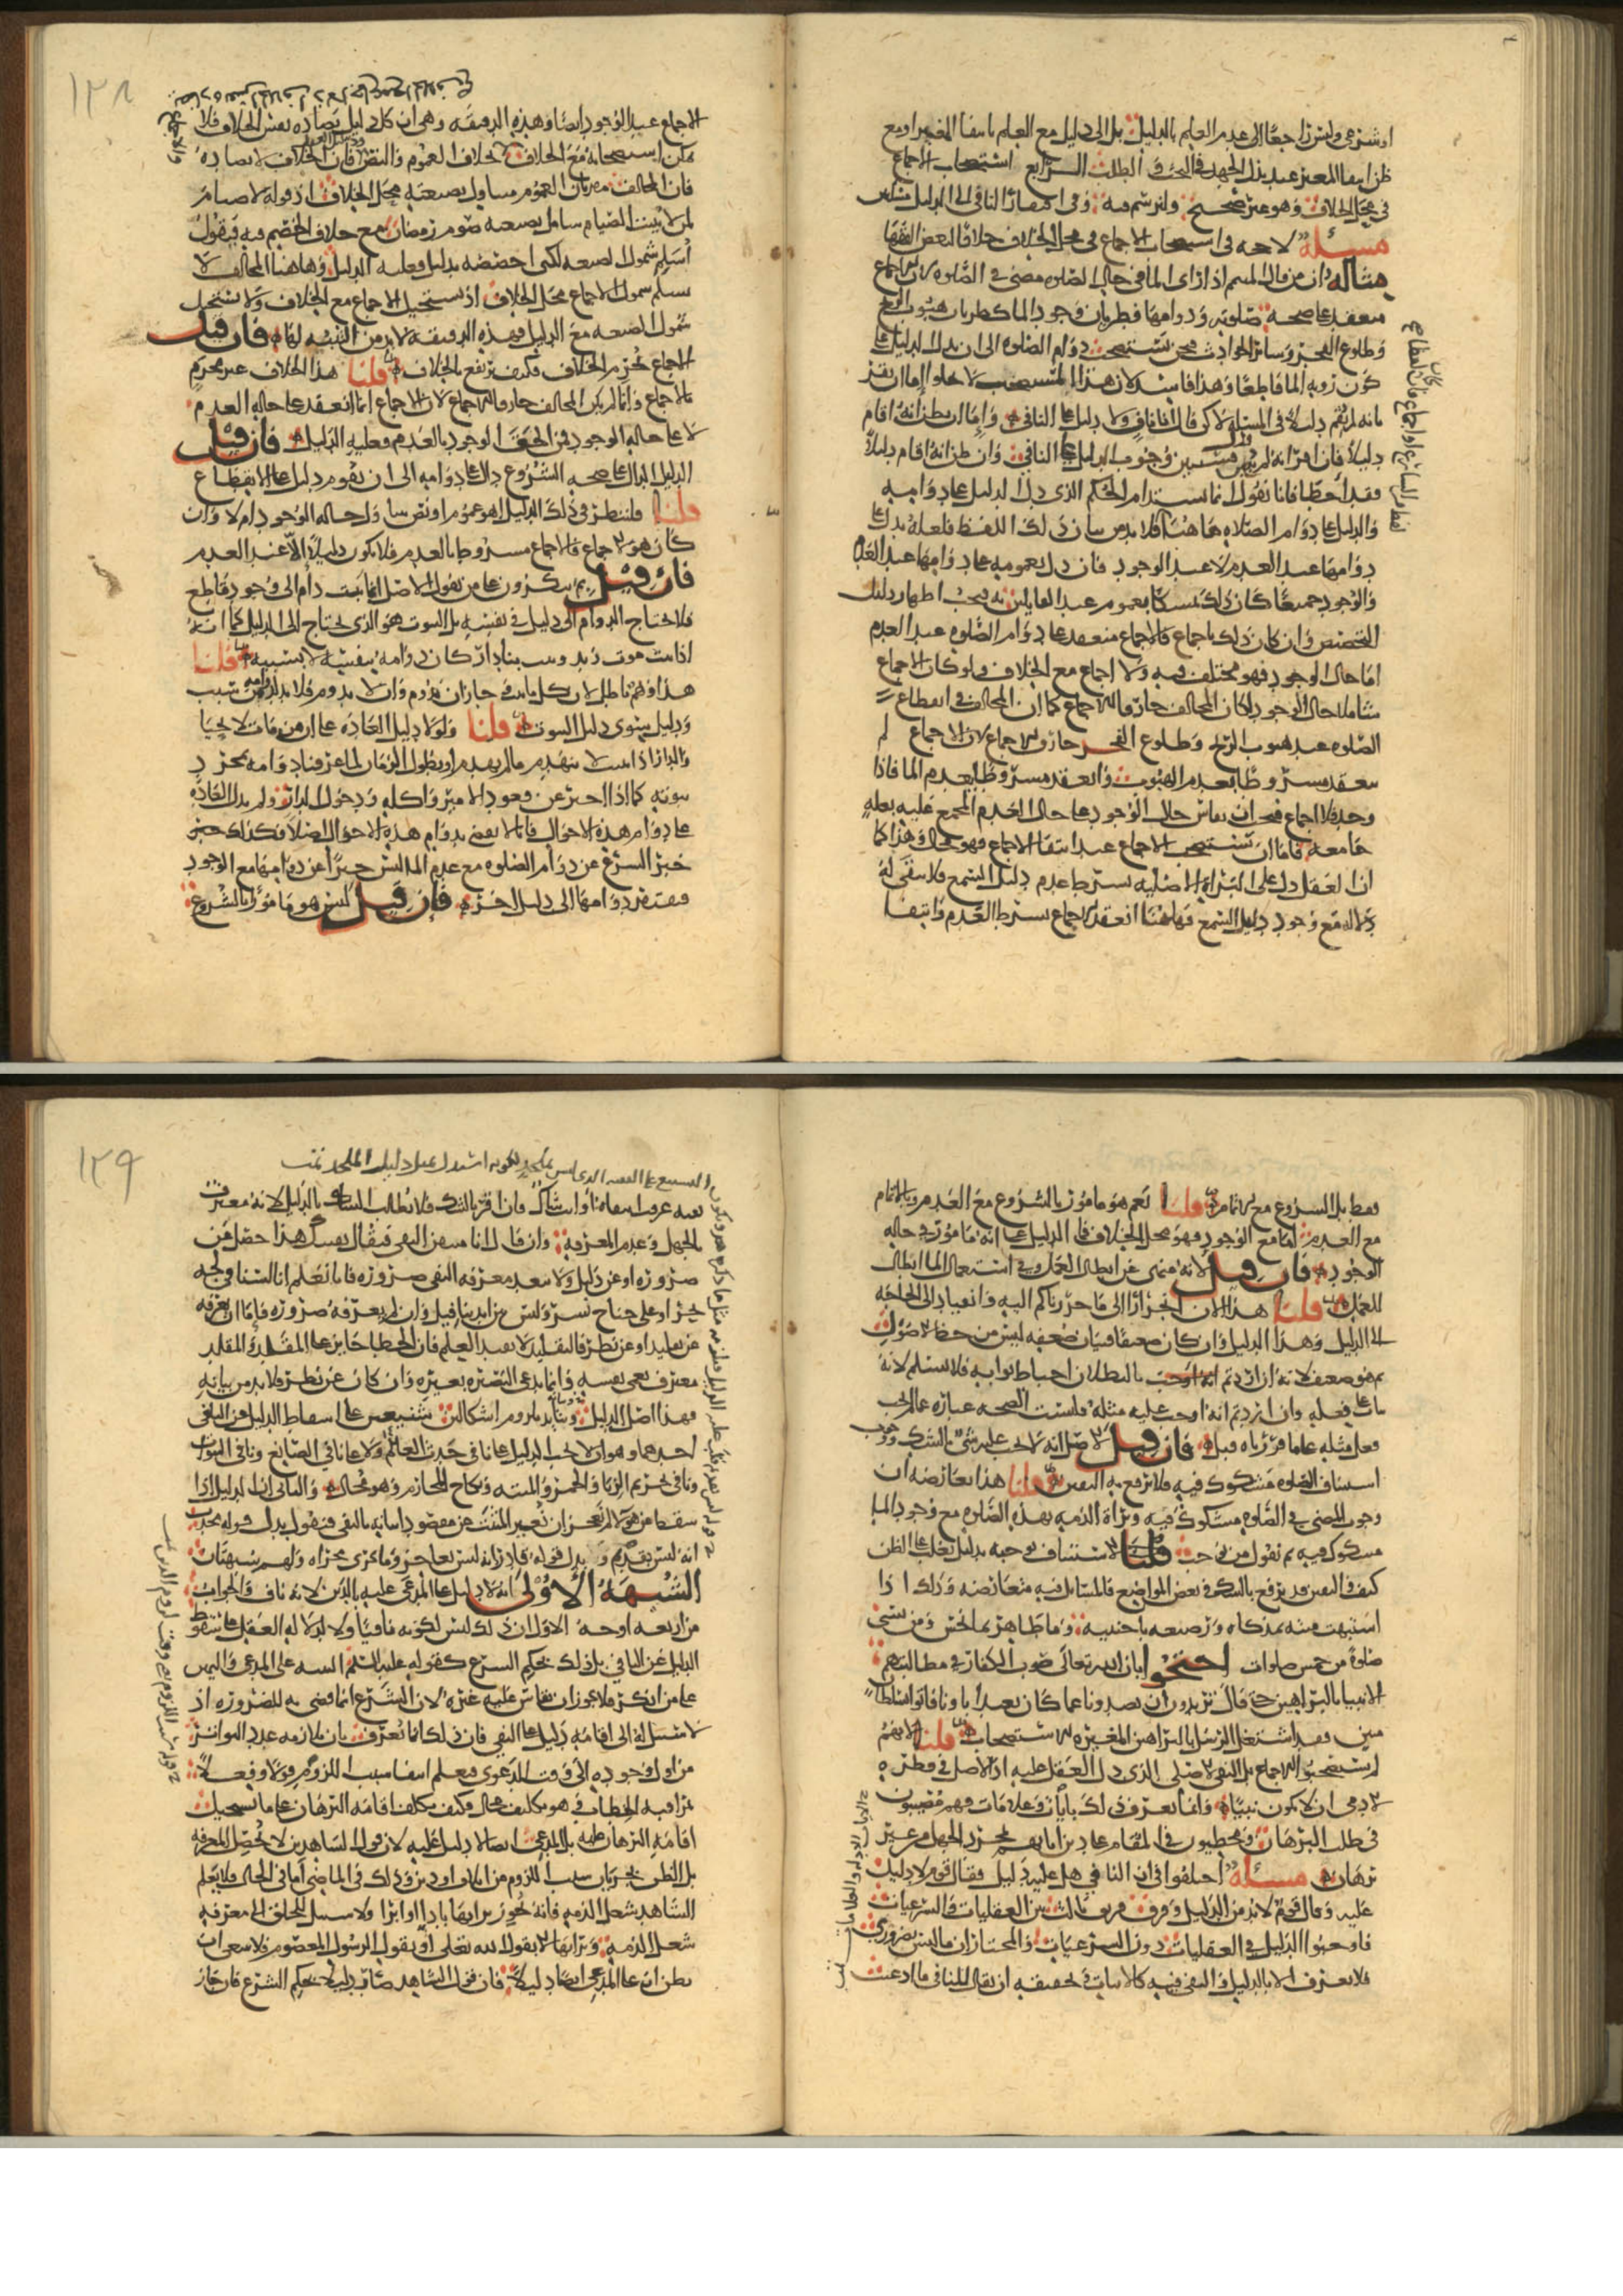 او شرعي وليس راجعا الى عدم العلم بالدليل بل الى دليل مع العلم بانتفا المغير او مع
ظن انتفا المغير عند بذل الجهد في البحث والطلب الرابع استصحاب الاجماع
في محل الخلاف وهو غير صحيح ولنرسم فيه وفي افتقار النافي الى الدليل مسلتين
مسئلة لا حجه في استصحاب الاجماع في محل الخلاف خلافا لبعض الفقها
ومثاله ان من قال المتيمم اذا راى الما في خلال الصلوه مضى في الصلوه لان الاجماع
منعقد على صحة صلوته ودوامها فطريان وجود الما كطريان هبوب الريح
وطلوع الفجر وسائر الحوادث فنحن نستصحب دوام الصلوه الى ان يدل الدليل على
كون رويه الما قاطعا وهذا فاسد لان هذا المستصحب لا يخلو اما ان يقر
بانه لم يقم دليلا في المسئلة لكن قال انا ناف ولا دليل على النافي واما ان يظن انه اقام
دليلا فان اقر انه لم يدل فسنبين وجوب الدليل على النافي وان ظن انه اقام دليلا
فقد اخطا فانا نقول انما يستدام الحكم الذي دل الدليل على دوامه
والدليل على دوام الصلاه هاهنا فلا بد من بيان ذلك اللفظ فلعله يدل على
دوامها عند العدم لا عند الوجود فان دل بعمومه على دوامها عند العدم
والوجود جميعا كان ذلك تمسكا بعموم عند القايلين به فيجب اظهار دليل
التخصيص وان كان ذلك باجماع فالاجماع منعقد على دوام الصلوه عند العدم
اما حال الوجود فهو مختلف فيه ولا اجماع مع الخلاف ولو كان الاجماع
شاملا حال الوجود لكان المخالف خارقا للاجماع كما ان المخالف في انقطاع
الصلوه عند هبوب الريح وطلوع الفجر خارق للاجماع لان الاجماع لم
ينعقد مشروطا بعدم الهبوب وانعقد مشروطا بعدم الما فاذا
وجد فلا اجماع فيجب ان يقاس حال الوجود على حال العدم المجمع عليه بعلة
جامعه فاما ان يستصحب الاجماع عند انتفا الاجماع فهو محال وهذا كما
ان العقل دل على البراة الاصليه بشرط عدم دليل السمع فلا يبقى له
دلاله مع وجود دليل السمع فهاهنا انعقد الاجماع بشرط العدم وانتفا
الاجماع عند الوجود ايضا وهذه الدقيقه وهي ان كل دليل يضاده نفس الخلاف فلا
يمكن استصحابه مع الخلاف بخلاف العموم والنص فان الخلاف لا يضاده
فان المخالف مقر بان العموم متناول بصيغته محل الخلاف اذ قوله لا صيام
لمن لا يبيت الصيام شامل بصيغته صوم رمضان مع خلاف الخصم فيه فيقول
اسلم شمول الصيغه لكني اخصصه بدليل فعليه الدليل وهاهنا المخالف لا
يسلم شمول الاجماع محل الخلاف اذ يستحيل الاجماع مع الخلاف ولا يستحيل
شمول الصيغه مع الدليل فهذه الدقيقه لا بد من التنبه لها فان قيل
الاجماع يحرم الخلاف فكيف يرتفع بالخلاف قلنا هذا الخلاف غير محرم
بالاجماع وانما لم يكن المخالف خارقا للاجماع لان الاجماع انما انعقد على حاله العدم
لا على حاله الوجود فمن الحق الوجود بالعدم فعليه الدليل فان قيل
الدليل الدال على صحه الشروع دال على دوامه الى ان يقوم دليل على الانقطاع
قلنا فلينظر في ذلك الدليل اهو عموم او نص يتناول حاله الوجود ام لا وان
كان هو الاجماع فالاجماع مشروط بالعدم فلا يكون دليلا الا عند العدم
فان قيل بم تنكرون على من يقول الاصل ان ما ثبت دام الى وجود قاطع
فلا يحتاج الدوام الى دليل في نفسه بل الثبوت هو الذي يحتاج الى الدليل كما انه
اذا ثبت موت زيد وثبت بنا دار كان دوامه بنفسه لا بسببيه قلنا
هذا وهم باطل لان كل ما ثبت جاز ان يدوم وان لا يدوم فلا بد لدوامه من سبب
ودليل سوى دليل الثبوت قلنا ولولا دليل العاده على ان من مات لا يحيا
والدار اذا بنيت لا تنهدم ما لم تهدم او يطول الزمان لما عرفنا دوامه بمجرد
ثبوته كما اذا اخبر عن قعود الامير واكله ودخوله الدار ولم تدل العاده
على دوام هذه الاحوال فانا لا نقضي بدوام هذه الاحوال اصلا فكذلك خبر
خبر الشرع عن دوام الصلوه مع عدم الما ليس خبرا عن دوامها مع الوجود
فيفتقر دوامها الى دليل اخر فان قيل ليس هو مامورا بالشروع
فقط بل الشروع مع الاتمام قلنا نعم هو مامور بالشروع مع العدم وبالاتمام
مع العدم اما مع الوجود فهو محل الخلاف فما الدليل على انه مامور في حاله
الوجود فان قيل لانه منهي عن ابطال العمل وفي استعمال الما ابطال
للعمل قلنا هذا الان انجرار الى ما جررناكم اليه وانقياد الى الحاجه
الى الدليل وهذا الدليل وان كان ضعيفا فبيان ضعفه ليس من حظ الاصولي
ثم هو ضعيف لانه ان اردتم بالبطلان احباط ثوابه فلا نسلم لانه
يثاب على فعله وان اردتم انه اوجب عليه مثله فليست الصحه عبارة عما لا يجب
فعل مثله على ما قررناه قبل فان قيل الاصل انه لا يجب عليه شي بالشك ووجوب
استيناف الصلوه مشكوك فيه فلا يرتفع به اليقين قلنا هذا يعارضه ان
وجوب المضي في الصلوه مشكوك فيه وبراة الذمه بهذه الصلوه مع وجود الما
مشكوك فيه ثم نقول من يوجب الاستيناف يوجبه بدليل يغلب على الظن
كيف واليقين قد يرتفع بالشك في بعض المواضع فالمسايل فيه متعارضه وذلك اذا
اشتبهت ميته بمذكاه ورضيعه باجنبيه وما طاهر بما نجس ومن نسي
صلوة من خمس صلوات احتجوا بان الله تعالى صوب الكفار في مطالبتهم
الانبيا بالبراهين حتى قال تريدون ان تصدونا عما كان يعبد اباونا فاتوا بسلطان
مبين فقد اشتغل الرسل بالبراهين المغيره للاستصحاب قلنا لانهم
لم يستصحبوا الاجماع بل النفي الاصلي الذي دل العقل عليه اذ الاصل في فطره
الادمي ان لا يكون نبيا وانما يعرف ذلك بايات وعلامات فهم مصيبون
في طلب البرهان ومخطيون في المقام على دين ابائهم بمجرد الجهل من غير
برهان مسئلة اختلفوا في ان النافي هل عليه دليل فقال قوم لا دليل
عليه وقال قوم لا بد من الدليل وفرق فريق ثالث بين العقليات والشرعيات
فاوجبوا الدليل في العقليات دون الشرعيات والمختار ان ما ليس بضروري
فلا يعرف الا بالدليل والنفي فيه كالاثبات وتحقيقه ان يقال للنافي ما ادعيت
نفيه عرفت انتفاه او انت شاك فان اقر بالشك فلا يطالب الشاك بالدليل لانه معترف
بالجهل وعدم المعرفه وان قال انا متيقن النفي فيقال يقينك هذا حصل عن
ضروره او عن دليل ولا تعد معرفه النفي ضروره فانا نعلم انا لسنا في لجه
بحر او على جناح نسر وليس بين ايدينا فيل وان لم يعرفه ضروره فاما ان عرفه
عن تقليد او عن نظر فالتقليد لا يفيد العلم فان الخطا جايز على المقلد والمقلد
معترف بعمى نفسه وانما يدعي البصيره لغيره وان كان عن نظر فلا بد من بيانه
فهذا اصل الدليل ويتايد بلزوم اشكالين شنيعين على اسقاط الدليل عن النافي
احدهما وهو ان لا يجب الدليل على نافي حدث العالم ولا على نافي الصانع ونافي النبوات
ونافي تحريم الزنا والخمر والميته ونكاح المحارم وهو محال والثاني ان الدليل اذا
سقط عن هولا لم يعجز ان يعبر المثبت عن مقصود اثباته بالنفي فيقول بدل قوله محدث
انه ليس بقديم وبدل قوله قادر انه ليس بعاجز وما يجري مجراه ولهم شبهتان
الشبهه الاولى انه لا دليل على المدعى عليه بالدين لانه ناف والجواب
من اربعه اوجه الاول ان ذلك ليس لكونه نافيا ولا لدلاله العقل على سقوط
الدليل عن النافي بل ذلك بحكم الشرع كقوله عليه السلم البينه على المدعي واليمين
على من انكر فلا يجوز ان يقاس عليه غيره لان الشرع انما قضى به للضروره اذ
لا سبيل الى اقامه دليل على النفي فان ذلك انما يعرف بان يلازمه عدد التواتر
من اول وجوده الى وقت الدعوى فيعلم انتفا سبب اللزوم قولا وفعلا
بمراقبه اللحظات فهو تكليف محال فكيف يكلف اقامه البرهان على ما يستحيل
اقامه البرهان عليه بل المدعي ايضا لا دليل عليه لان قول الشاهدين لا يحصل المعرفه
بل الظن بجريان سبب اللزوم من اتلاف او دين وذلك في الماضي اما في الحال فلا يعلم
الشاهد شغل الذمه فانه يجوز براتها بادا او ابرا ولا سبيل للخلق الى معرفه
شغل الذمه وبراتها الا بقول الله تعالى او بقول الرسول المعصوم فلا ينبغي ان
يظن ان على المدعي ايضا دليلا فان قول الشاهد صار دليلا بحكم الشرع فان جاز